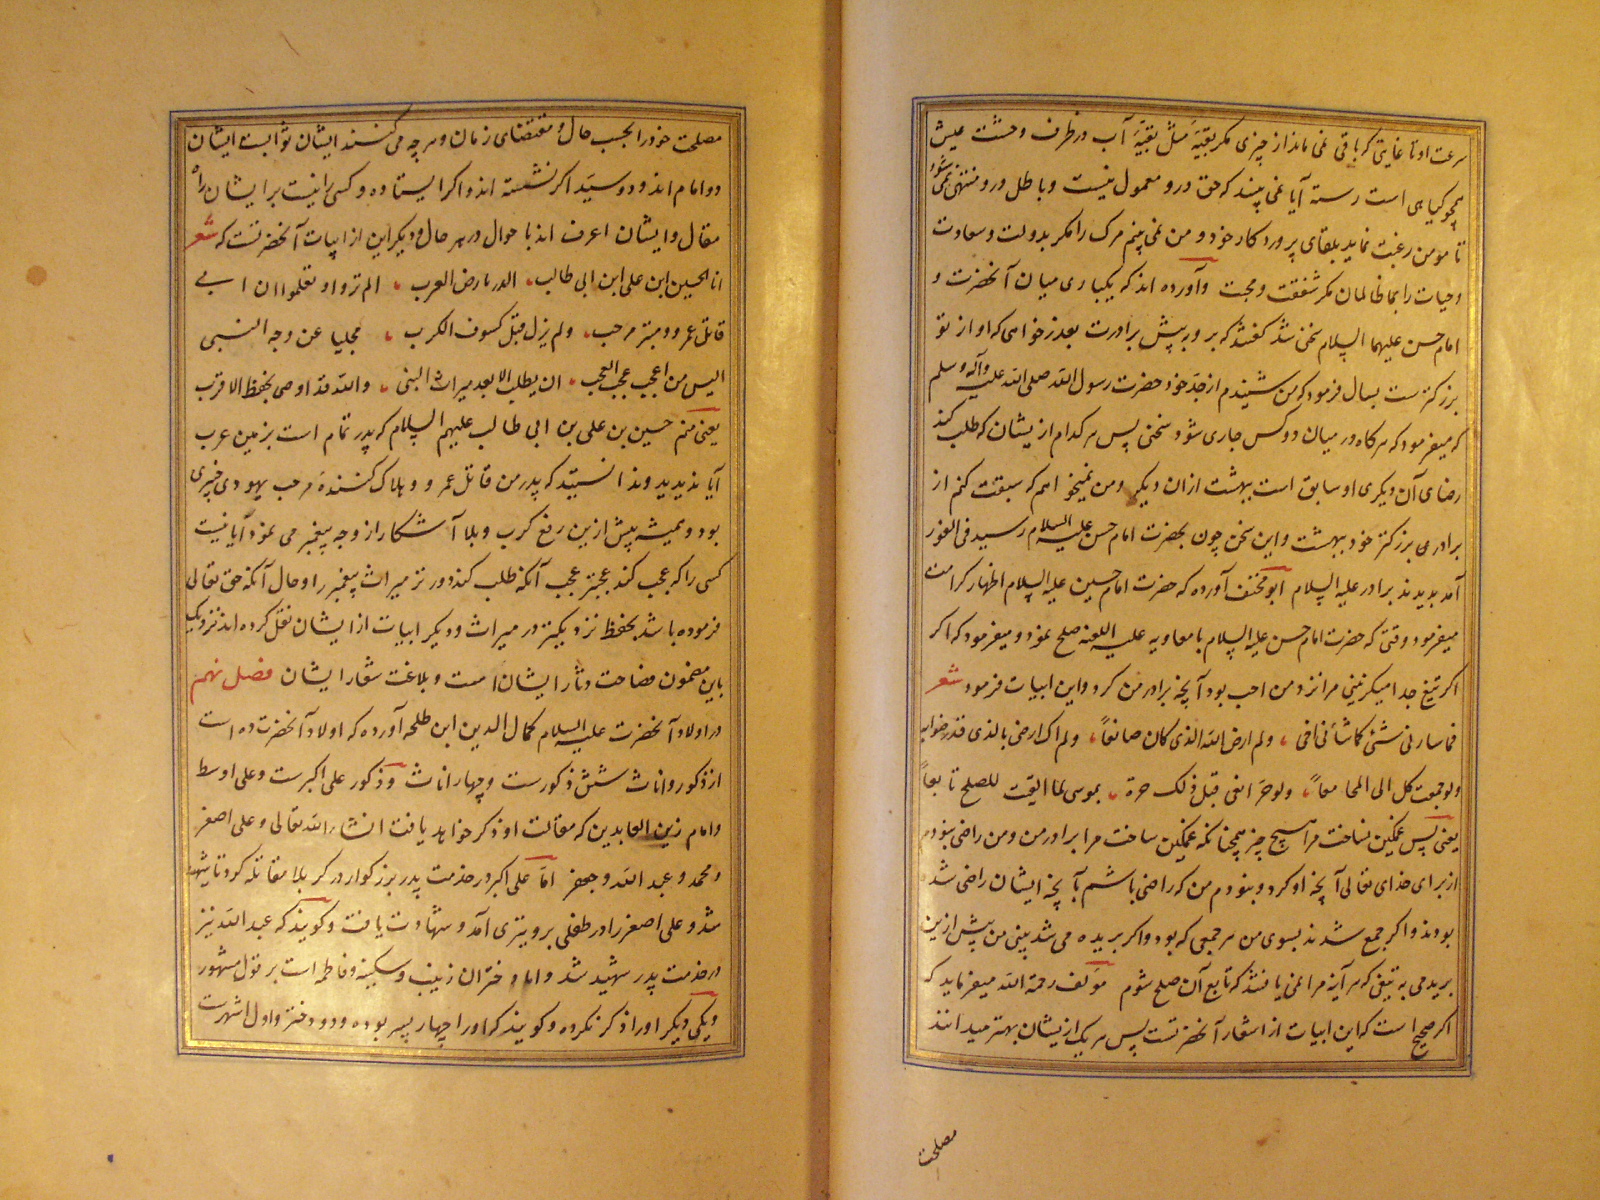 سرعت او تا غایتی که باقی نمی ماند از چیزی مگر بقیه مثل بقیه آب در ظرف و حشت عیش
همچو کیاهی است رسته آیا نمی بینید که حق درو معمول نیست و باطل درو منتهی نمی شود
تا مومن رغبت نماید بلقای پروردکار خود و من نمی بینم مرک را مکر بدولت و سعادت
و حیات را با ظالمان مکر شفقت و محنت وآورده اند که یکباری میان آنحضرت و
امام حسن علیهما السلام سخنی شد کفتند که برو به پیش برادرت بعذرخواهی که او از تو
بزرکترست بسال فرمود که من شنیدم از جد خود حضرت رسول الله صلی الله علیه وآله وسلم
که میفرمود که هرکاه در میان دو کس جاری شود سخنی پس هرکدام ازیشان که طلب کند
رضای آن دیکری او سابق است ببهشت از آن دیکر ومن نمیخواهم که سبقت کنم از
برادری بزرکتر خود ببهشت و این سخن چون بحضرت امام حسن علیه السلام رسید فی الفور
آمد بدیدند برادر علیه السلام ابو مخنف آورده که حضرت امام حسین علیه السلام اظهار کراهت
میفرمود وقتی که حضرت امام حسن علیه السلام با معاویه علیه اللعنه صلح نمود و میفرمود که اکر
اکر تیغ جدا میکرد بینی مرا نزد من احب بود آنچه برادر من کرد و این ابیات فرمود شعر
فما ساءنی شئ کما ساءنی اخی ، ولم ارض الله الذی کان صانعا ، ولم اک ارضی بالذی قد رضوا به
ولو جمعت کل الی المجامعا ، ولو حز انفی قبل ذلک حزة ، بموسی لما القیت للصلح تابعا
یعنی پس غمکین نساخت مرا هیچ چیز همچنانکه غمکین ساخت مرا برادر من و من راضی نبودم
از برای خدای تعالی آنچه او کرد و نبودم من که راضی باشم بآنچه ایشان راضی شده
بودند و اکر جمع شدند بسوی من هر جمعی که بود و اکر بریده می شد بینی من پیش ازین
بریدمی به تیغی که هر آینه مرا نمی یافتند که تابع آن صلح شوم مؤلف رحمة الله میفرماید که
اکر صحیح است که این ابیات از اشعار آنحضرتست پس هریک ازیشان بهتر میدانند
مصلحت
مصلحت خود را بحسب حال و مقتضای زمان و هرچه می کنند ایشان ثوابست ایشان
دو امام اند و دو سید اکر نشسته اند و اکر ایستاده و کسی را نیست بر ایشان راه
مقال و ایشان اعرف اند با حوال در هر حال و دیکر این از ابیات آنحضرتست که شعر
انا الحسین ابن علی ابن ابی طالب ، البدر بارض العرب ، الم تروا و تعلموا ان ابی
قاتل عمرو و مبتر مرحب ، ولم یزل قبل کسوف الکرب ، مجلیا عن وجه النبی
الیس من اعجب عجب العجب ، ان یطلب الابعد میراث النبی ، والله قد اوصی بحفظ الاقرب
یعنی منم حسین بن علی بن ابی طالب علیهم السلام که بدر تمام است بزمین عرب
آیا ندیدید و ندانستید که پدر من قاتل عمرو و هلاک کننده مرحب یهودی خیبری
بود و همیشه پیش ازین رفع کرب و بلا آشکار از وجه پیغمبر می نمود آیا نیست
کسی را که عجب کند عجبتر عجب آنکه طلب کند دورتر میراث پیغمبر را و حال آنکه حق تعالی
فرموده باشد بحفظ نزدیکتر در میراث و دیکر ابیات از ایشان نقل کرده اند نزدیک
باین مضمون فصاحت دثار ایشان است و بلاغت شعار ایشان فصل نهم
در اولاد آنحضرت علیه السلام کمال الدین ابن طلحه آورده که اولاد آنحضرت ده است
از ذکور و اناث شش ذکورست و چهار اناث و ذکور علی اکبرست و علی اوسط
و امام زین العابدین که مقالت او ذکر خواهد یافت انشاء الله تعالی و علی اصغر
و محمد و عبد الله و جعفر اما علی اکبر در خدمت پدر بزرکوار در کربلا مقاتله کرد تا شهید
شد و علی اصغر را در طفلی برو تیری آمد و شهادت یافت و کویند که عبد الله نیز
در خدمت پدر شهید شد و اما دختران زینب و سکینه و فاطمه است بر قول مشهور
و یکی دیکر اورا ذکر نکرده و کویند که اورا چهار پسر بوده و دو دختر و اول اشهرست